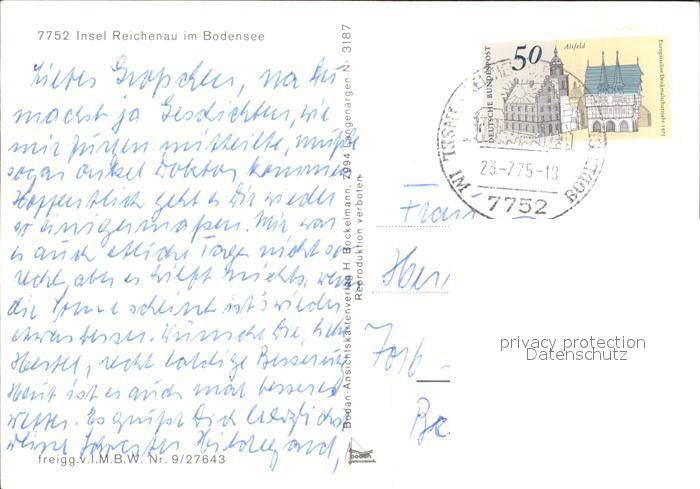 7752 Insel Reichenau im Bodensee
Liebes Großchen, na Du
machst ja Geschichten, wie
mir Jürgen mitteilte, mußte
sogar Onkel Doktor kommen
Hoffentlich geht es Dir wieder
so einigermaßen. Mir war
es auch etliche Tage nicht so
recht, aber es hilft nichts, wenn
die Sonne scheint ist's wieder
etwas besser. Wünsche Dir, liebe
recht baldige Besserung
Heut ist es auch mal besseres
Wetter. Es grüßt Dich herzlich
Deine Schwester Hildegard,
freigg.v.I.M.B.W. Nr. 9/27643
Bodan-Ansichtskartenverlag H. Bockelmann, 7994 Langenargen Nr. 3187
Reproduktion verboten
BODAN
DEUTSCHE BUNDESPOST
50
Alsfeld
Europäisches Denkmalschutzjahr 1975
INSEL
23.-7.75-18
IM
7752
BODENSEE
Frau
Her
privacy protection
Datenschutz